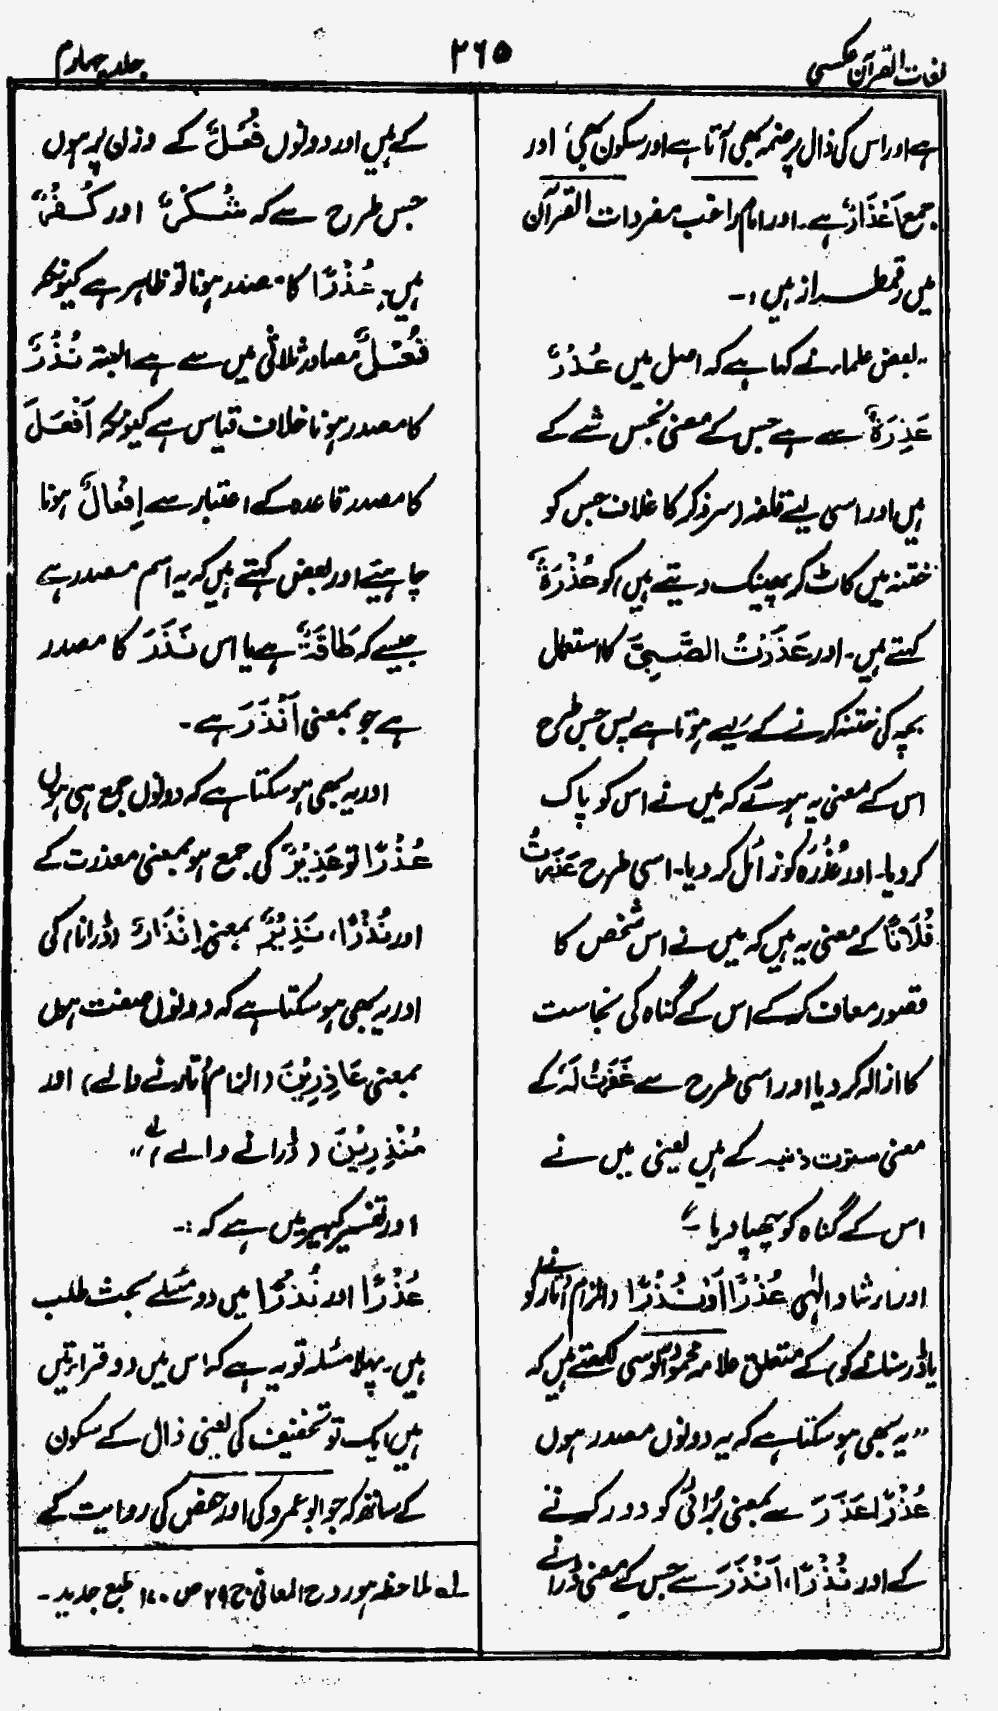 لغات القرآن عکسی
۲۶۵
جلد چہارم
ہے اور اس کی ذال پر ضمہ بھی آتا ہے اور سکون بھی، اور
جمع اَعْذَارٌ ہے۔ اور امام راغب مفردات القرآن
میں رقمطراز ہیں :۔
"بعض علماء نے کہا ہے کہ اصل میں عُذْرٌ
عَذِرَةٌ سے ہے جس کے معنی نجس شے کے
ہیں اور اسی لیے قلفہ (سر ذکر کا غلاف جس کو
ختنہ میں کاٹ کر پھینک دیتے ہیں) کو عُذْرَةٌ
کہتے ہیں۔ اور عَذَرْتُ الصَّبِیَّ کا استعمال
بچہ کی ختنہ کرنے کے لیے ہوتا ہے پس جس طرح
اس کے معنی یہ ہوئے کہ میں نے اس کو پاک
کر دیا۔ اور عُذْرَہ کو زائل کر دیا۔ اسی طرح عَذَرْتُ
فُلَانًا کے معنی یہ ہیں کہ میں نے اس شخص کا
قصور معاف کر کے اس کے گناہ کی نجاست
کا ازالہ کر دیا اور اسی طرح سے غَفَرْتُ لَهٗ کے
معنی سترت ذنبہ کے ہیں یعنی میں نے
اس کے گناہ کو چھپا دیا۔"
اور ارشاد الٰہی عُذْرًا اَوْ نُذْرًا (الزام اتارنے کو
یا ڈر سنانے کو) کے متعلق علامہ محمود آلوسی لکھتے ہیں کہ
"یہ بھی ہو سکتا ہے کہ یہ دونوں مصدر ہوں
عُذْرًا عَذَرَ سے بمعنی بُرائی کو دور کرنے
کے اور نُذْرًا، اَنْذَرَ سے جس کے معنی ڈرانے
کے ہیں اور دونوں فُعْلٌ کے وزن پر ہوں
جس طرح سے کہ شُکْرٌ اور کُفْرٌ
ہیں۔ عُذْرًا کا مصدر ہونا تو ظاہر ہے کیونکہ
فُعْلٌ مصادر ثلاثی میں سے ہے البتہ نُذْرٌ
کا مصدر ہونا خلاف قیاس ہے کیونکہ اَفْعَلَ
کا مصدر قاعدہ کے اعتبار سے اِفْعَالٌ ہونا
چاہیئے اور بعض کہتے ہیں کہ یہ اسم مصدر ہے
جیسے کہ طَاقَةٌ ہے یا اس نَذَرَ کا مصدر
ہے جو بمعنی اَنْذَرَ ہے۔
اور یہ بھی ہو سکتا ہے کہ دونوں جمع ہی ہوں
عُذْرًا تو عَذِیْرٌ کی جمع ہو بمعنی معذرت کے
اور نُذْرًا، نَذِیْرٌ بمعنی اِنْذَارٌ (ڈرانا) کی
اور یہ بھی ہو سکتا ہے کہ دونوں صفت ہوں
بمعنی عَاذِرِیْنَ (الزام اُتارنے والے) اور
مُنْذِرِیْنَ (ڈرانے والے) لہ"
اور تفسیر کبیر میں ہے کہ :۔
عُذْرًا اور نُذْرًا میں دو مسئلے بحث طلب
ہیں۔ پہلا مسئلہ تو یہ ہے کہ اس میں دو قرارتیں
ہیں، ایک تو تخفیف کی یعنی ذال کے سکون
کے ساتھ کہ جو ابو عمرو کی اور حفص کی روایت کے
لہ ملاحظہ ہو روح المعانی ج ۲۹ ص ۱۷۰ طبع جدید۔